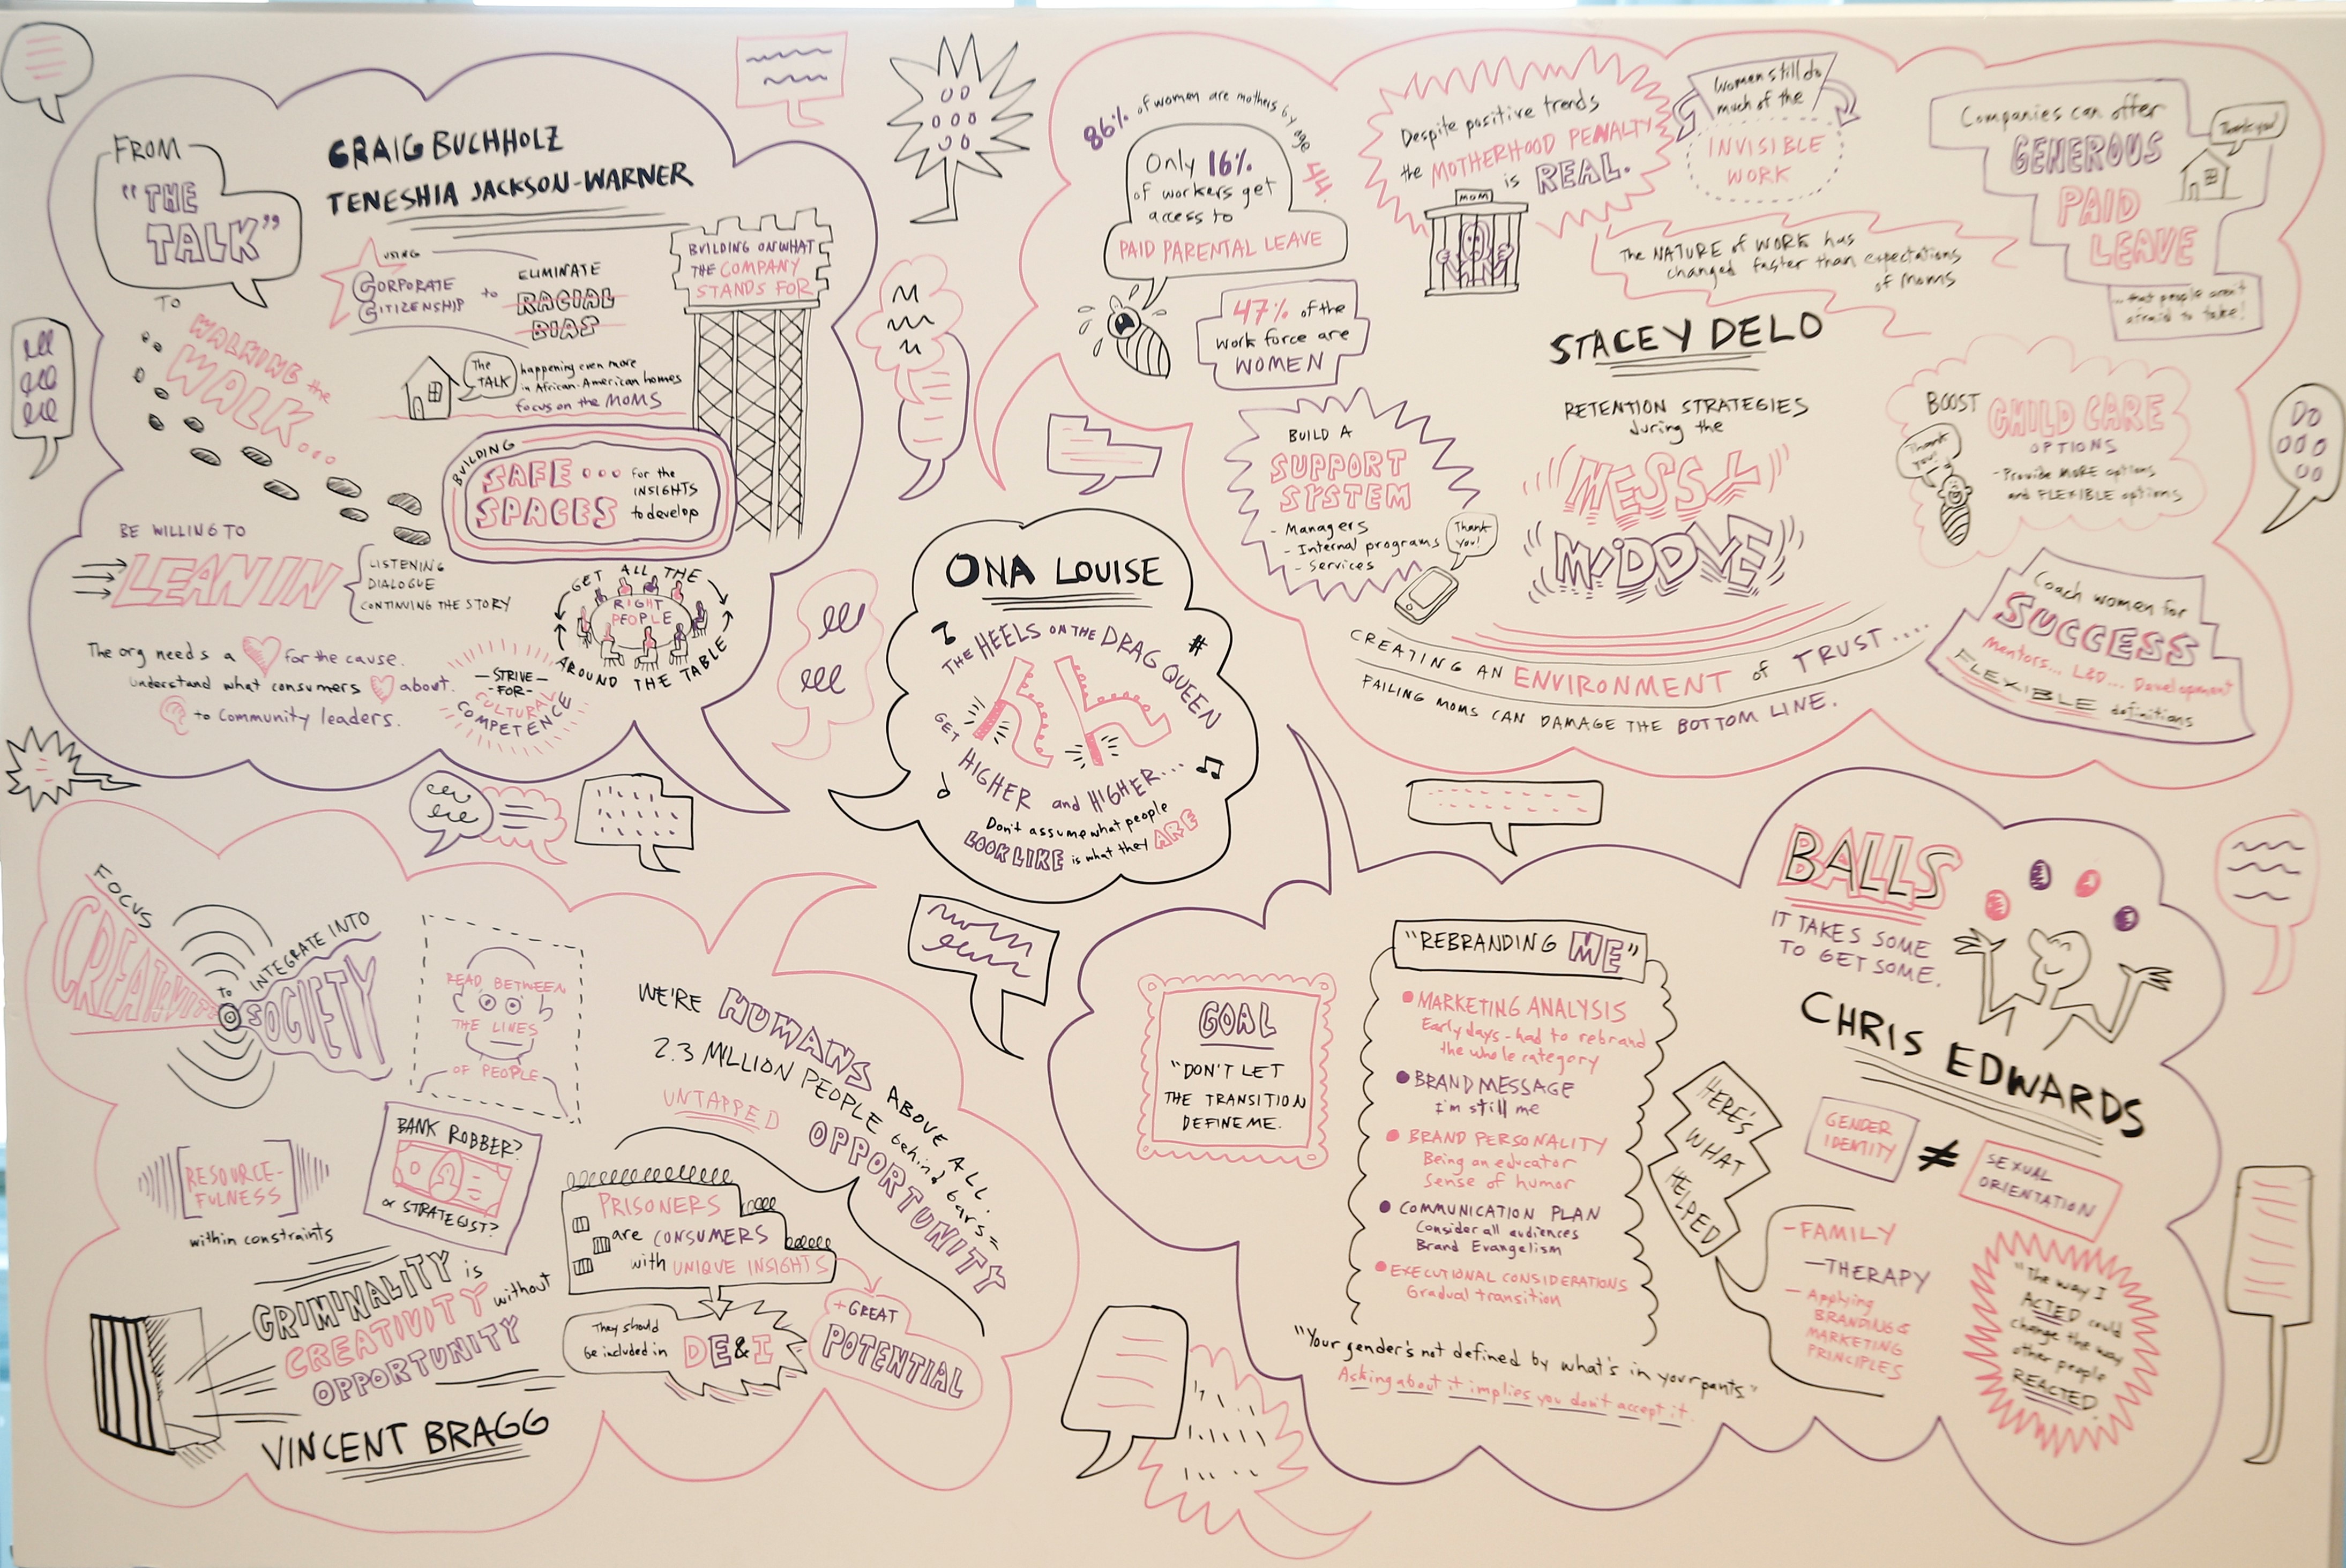 FROM
"THE
TALK"
TO
WALKING the
WALK...
CRAIG BUCHHOLZ
TENESHIA JACKSON-WARNER
USING
CORPORATE
CITIZENSHIP
to
ELIMINATE
RACIAL
BIAS
BUILDING ON WHAT
THE COMPANY
STANDS FOR
The
TALK
happening even more
in African-American homes
focus on the MOMS
BUILDING
SAFE...
SPACES
for the
INSIGHTS
to develop
BE WILLING TO
LEAN IN
LISTENING
DIALOGUE
CONTINUING THE STORY
GET ALL THE
RIGHT
PEOPLE
AROUND THE TABLE
The org needs a for the cause.
understand what consumers about.
to Community leaders.
STRIVE
-FOR-
CULTURAL
COMPETENCE
86% of women are mothers by age 44.
Only 16%
of workers get
access to
PAID PARENTAL LEAVE
47% of the
work force are
WOMEN
Despite positive trends
the MOTHERHOOD PENALTY
is REAL.
MOM
Women still do
much of the
INVISIBLE
WORK
The NATURE of WORK has
changed faster than expectations
of moms
Companies can offer
GENEROUS
PAID
LEAVE
Thank you!
...that people aren't
afraid to take!
STACEY DELO
RETENTION STRATEGIES
during the
MESSY
MIDDLE
BUILD A
SUPPORT
SYSTEM
- Managers
- Internal programs
- Services
Thank
you!
BOOST CHILD CARE
OPTIONS
- Provide MORE options
and FLEXIBLE options
Thank
you!
Coach women for
SUCCESS
Mentors... L&D... Development
FLEXIBLE definitions
CREATING AN ENVIRONMENT of TRUST....
FAILING MOMS CAN DAMAGE THE BOTTOM LINE.
ONA LOUISE
THE HEELS ON THE DRAG QUEEN
GET HIGHER and HIGHER...
Don't assume what people
LOOK LIKE is what they ARE
FOCUS
CREATIVITY
to
INTEGRATE INTO
SOCIETY
READ BETWEEN
THE LINES
OF PEOPLE
WE'RE HUMANS ABOVE ALL.
2.3 MILLION PEOPLE behind bars =
UNTAPPED
OPPORTUNITY
[RESOURCE-
FULNESS]
within constraints
BANK ROBBER?
or STRATEGIST?
PRISONERS
are CONSUMERS
with UNIQUE INSIGHTS
They should
be included in
DE&I
+ GREAT
POTENTIAL
CRIMINALITY is
CREATIVITY without
OPPORTUNITY
VINCENT BRAGG
BALLS
IT TAKES SOME
TO GET SOME.
CHRIS EDWARDS
GOAL
"DON'T LET
THE TRANSITION
DEFINE ME.
"REBRANDING ME"
MARKETING ANALYSIS
Early days - had to rebrand
the whole category
BRAND MESSAGE
I'm still me
BRAND PERSONALITY
Being an educator
Sense of humor
COMMUNICATION PLAN
Consider all audiences
Brand Evangelism
EXECUTIONAL CONSIDERATIONS
Gradual transition
HERE'S
WHAT
HELPED
- FAMILY
- THERAPY
- Applying
BRANDING &
MARKETING
PRINCIPLES
GENDER
IDENTITY
≠
SEXUAL
ORIENTATION
"The way I
ACTED could
change the way
other people
REACTED.
"Your gender's not defined by what's in your pants."
Asking about it implies you don't accept it.